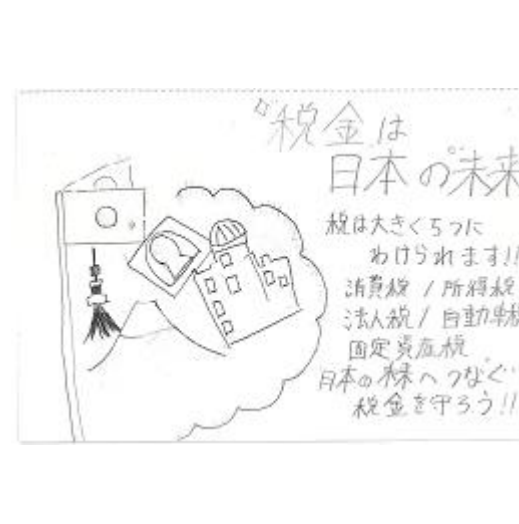 "税金は
日本の"未来
税は大きく5つに
わけられます!!
消費税 / 所得税
法人税 / 自動車税
固定資産税
日本の未来へつなぐ
税金を守ろう!!